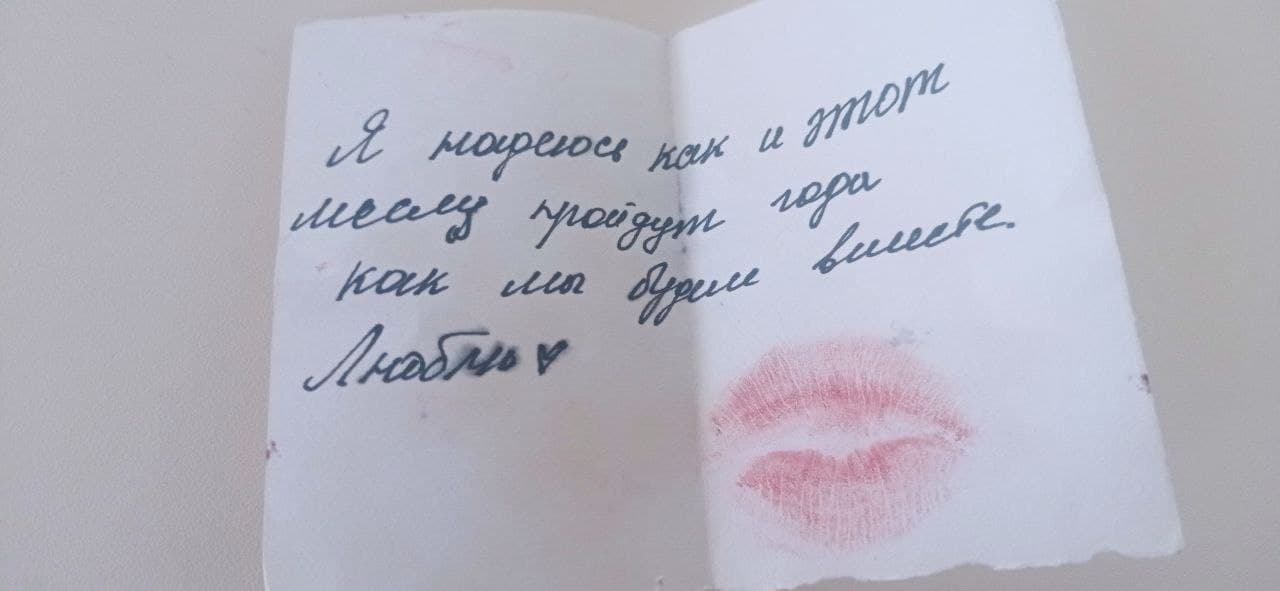 Я надеюсь как и этот
месяц пройдут года
как мы будем вместе.
Люблю ♥